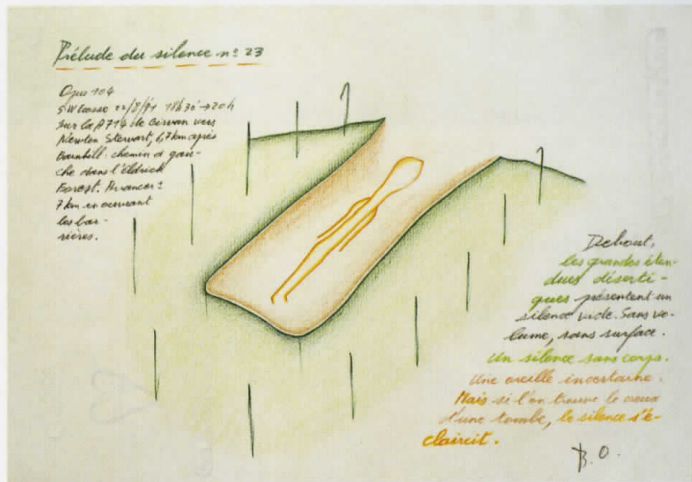 Prélude du silence n° 23
Opus 104
SW Ecosse 22/8/91 18h30→20h
Sur la A714 de Girvan vers
Newton Stewart, 6,7km après
Barrhill: chemin à gau-
che dans l'Eldrick
Forest. Avancer
7km en ouvrant
les bar-
rières.
Debout,
les grandes éten-
dues déserti-
ques présentent un
silence vide. Sans vo-
lume, sans surface.
Un silence sans corps.
Une oreille incertaine.
Mais si l'on trouve le creux
d'une tombe, le silence s'é-
claircit.
B.O.